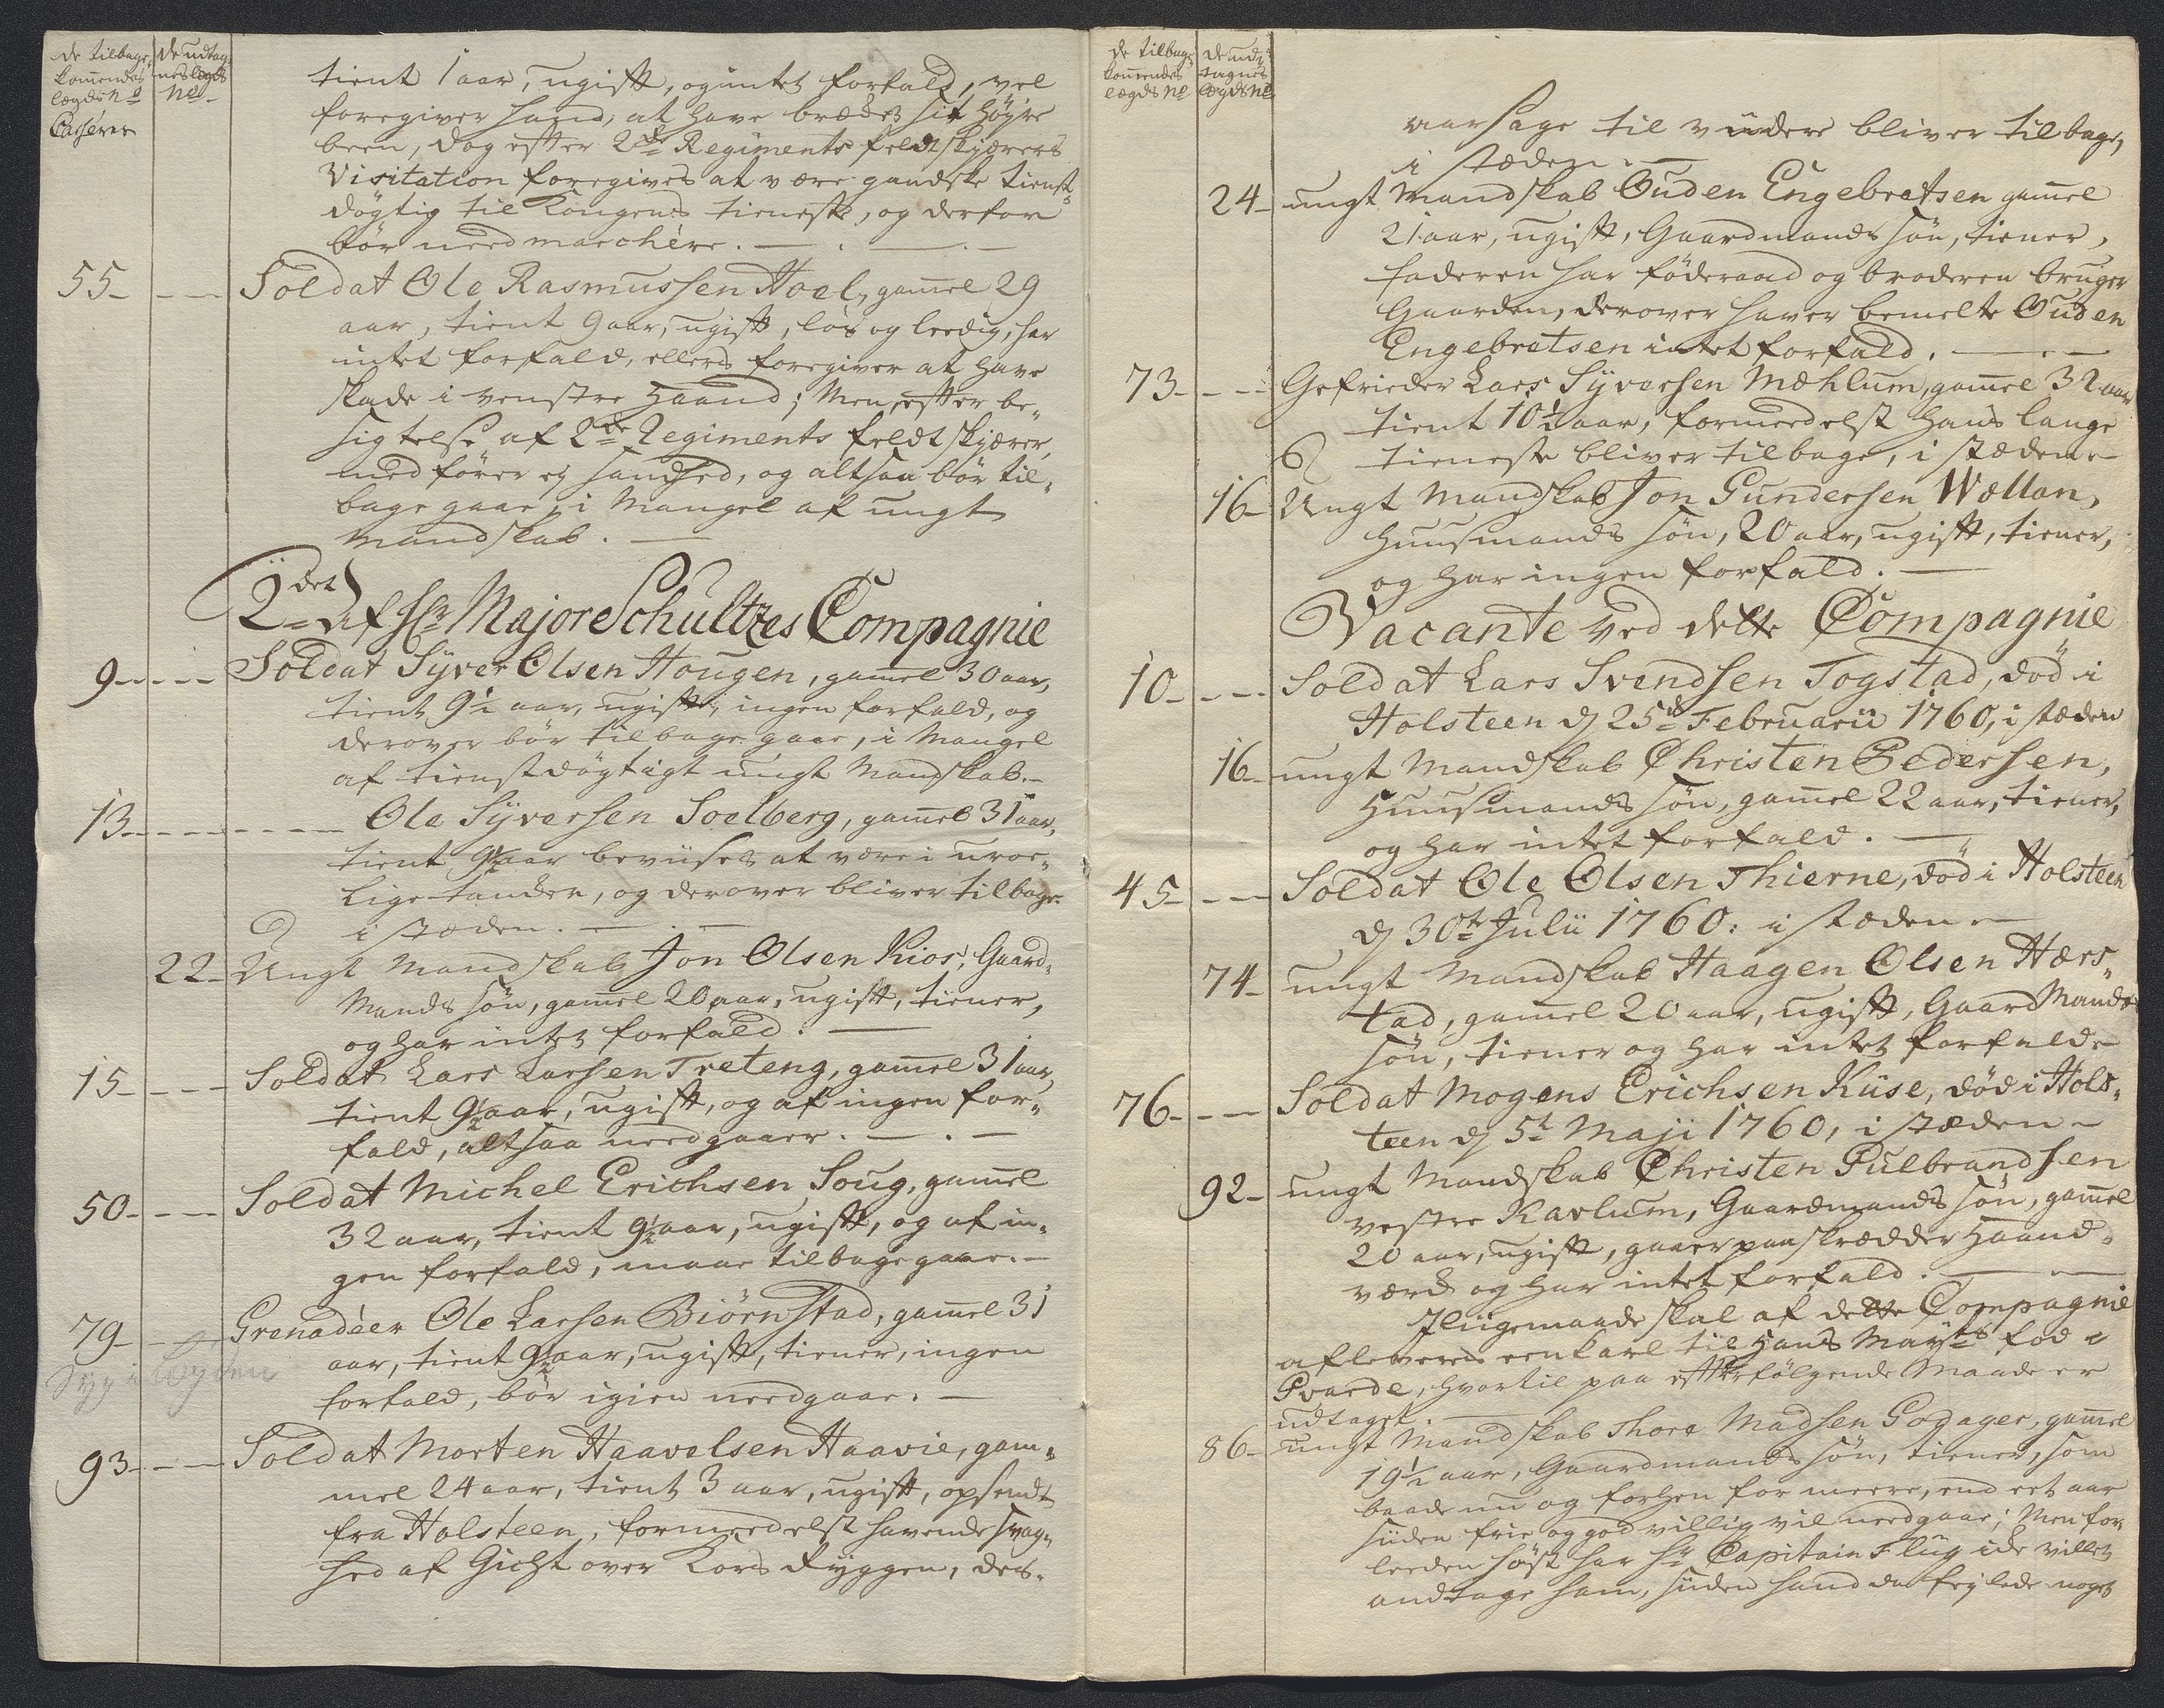 de tilbage¬
kommendes
lægds No
Casserer
de udtag¬
nes lægds
No
tient 1 aar, ugift, og intet forfald, vel
foregiver hand, at have brædet sit høyre
been, dog efter 2de Regiments feldtskiærers
Visitation foregives at være gandske tienst¬
dögtig til Kongens tieneste, og derfor
bör nedmarchére.
55 Soldat Ole Rasmussen Hoel, gamel 29
aar, tient 9 aar, ugift, lös og leedig, har
intet forfald, ellers foregiver at have
skade i venstre Haand; Men efter be¬
sigtelse af 2de Regiments feldtskiærer,
medfører ej sandhed, og altsaa bör til¬
bage gaae, i Mangel af ungt
Mandskab.
2det af Hr Majore Schultzes Compagnie
9 Soldat Syver Olsen Hougen, gamel 30 aar,
tient 9½ aar, ugift, ingen forfald, og
derover bör tilbage gaae, i Mangel
af tienstdögtigt ungt Mandskab.
13 Ole Syversen Soelberg, gamel 31 aar,
tient 9½ aar beviises at være i uroe¬
lige tander, og derover bliver tilbage
i stæden.
22 Ungt Mandskab Jon Olsen Kios, Gaard¬
Mands sön, gamel 20 aar, ugift, tiener,
og har intet forfald.
15 Soldat Lars Larsen Treteng, gamel 31 aar,
tient 9½ aar, ugift, og af ingen for¬
fald, altsaa needgaaer.
50 Soldat Michel Erichsen Soug, gamel
32 aar, tient 9½ aar, ugift, og af in¬
gen forfald, maae tilbage gaae.
79 Grenadéer Ole Larsen Biörnstad, gamel 31
Syg i lægden
aar, tient 9½ aar, ugift, tiener, ingen
forfald, bör igien needgaae.
93 Soldat Morten Haavelsen Haavie, gam¬
mel 24 aar, tient 3 aar, ugift, opsendt
fra Holsteen, formeedelst havende svag¬
hed af Gicht over Kors Ryggen, des¬
de tilbage
kommendes
lægds No
de ud¬
tagnes
lægds No
aarsage til viidere bliver tilbage,
i stæden
24 ungt Mandskab Ouden Engebretsen gamel
21 aar, ugift, Gaardmands sön, tiener,
faderen har föderaad og broderen bruger
Gaarden, derover haver bemelte Ouden
Engebretsen intet forfald.
73 Gefrieder Lars Syversen Mæhlum, gamel 32 aar
tient 10½ aar, formeedelst hans lange
tieneste bliver tilbage, i stædene
16 Ungt Mandskab Jon Gundersen Wællan,
Huusmands sön, 20 aar, ugift, tiener,
og har ingen forfald.
Vacante ved dette Compagnie
10 Soldat Lars Svendsen Togstad, död i
Holsteen d 25de Februarii 1760, i stæden
16 ungt Mandskab Christen Pedersen,
Huusmands sön, gamel 22 aar, tiener,
og har intet forfald.
45 Soldat Ole Olsen Thierne, död i Holsteen
d 30te Julii 1760: i stæden
74 ungt Mandskab Haagen Olsen Hærs¬
tad, gamel 20 aar, ugift, Gaard Mands
sön, tiener og har intet forfald
76 Soldat Mogens Erichsen Kiise, död i Hols¬
teen d 5te Maji 1760, i stæden
92 ungt Mandskab Christen Gulbrandsen
vestre Karlum, Gaardmands sön, gamel
20 aar, ugift, gaaer paa skrædder Haand¬
værk og har intet forfald.
Iliigemaade skal af dette Compagnie
afleveres een karl til Hans Mayts fod
Gvarde, hvortil paa efterfölgende Maade er
udtaget.
86 ungt Mandskab Thore Madsen Godager, gamel
19½ aar, Gaardmands sön, tiener, som
baade nu og forhen for meere, end eet aar
siiden frie og godvillig vil needgaae; Men for¬
leeden höst har Hr Capitain Flüg icke villet
andtage ham, siiden hand da feylede noget